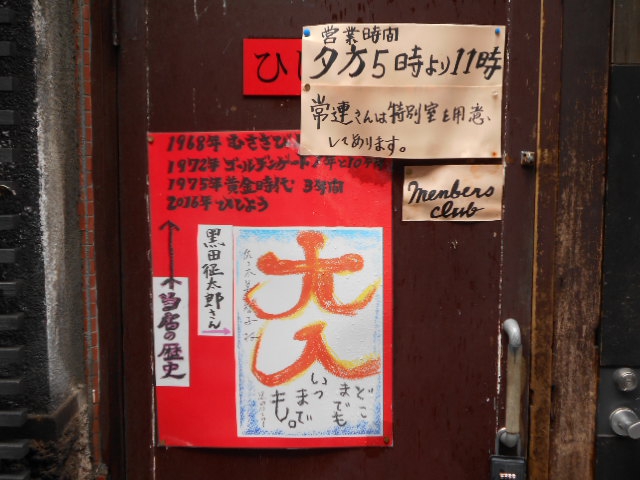 営業時間
夕方5時より11時
常連さんは特別室を用意
してあります。
Menbers
club
ひ
1968年 むささび
1972年 ゴールデンゲート
1975年 黄金時代 3年間
2016年 ひひよう
当店の歴史
黒田征太郎さん
大入
どこ
までも
いつ
まで
も。